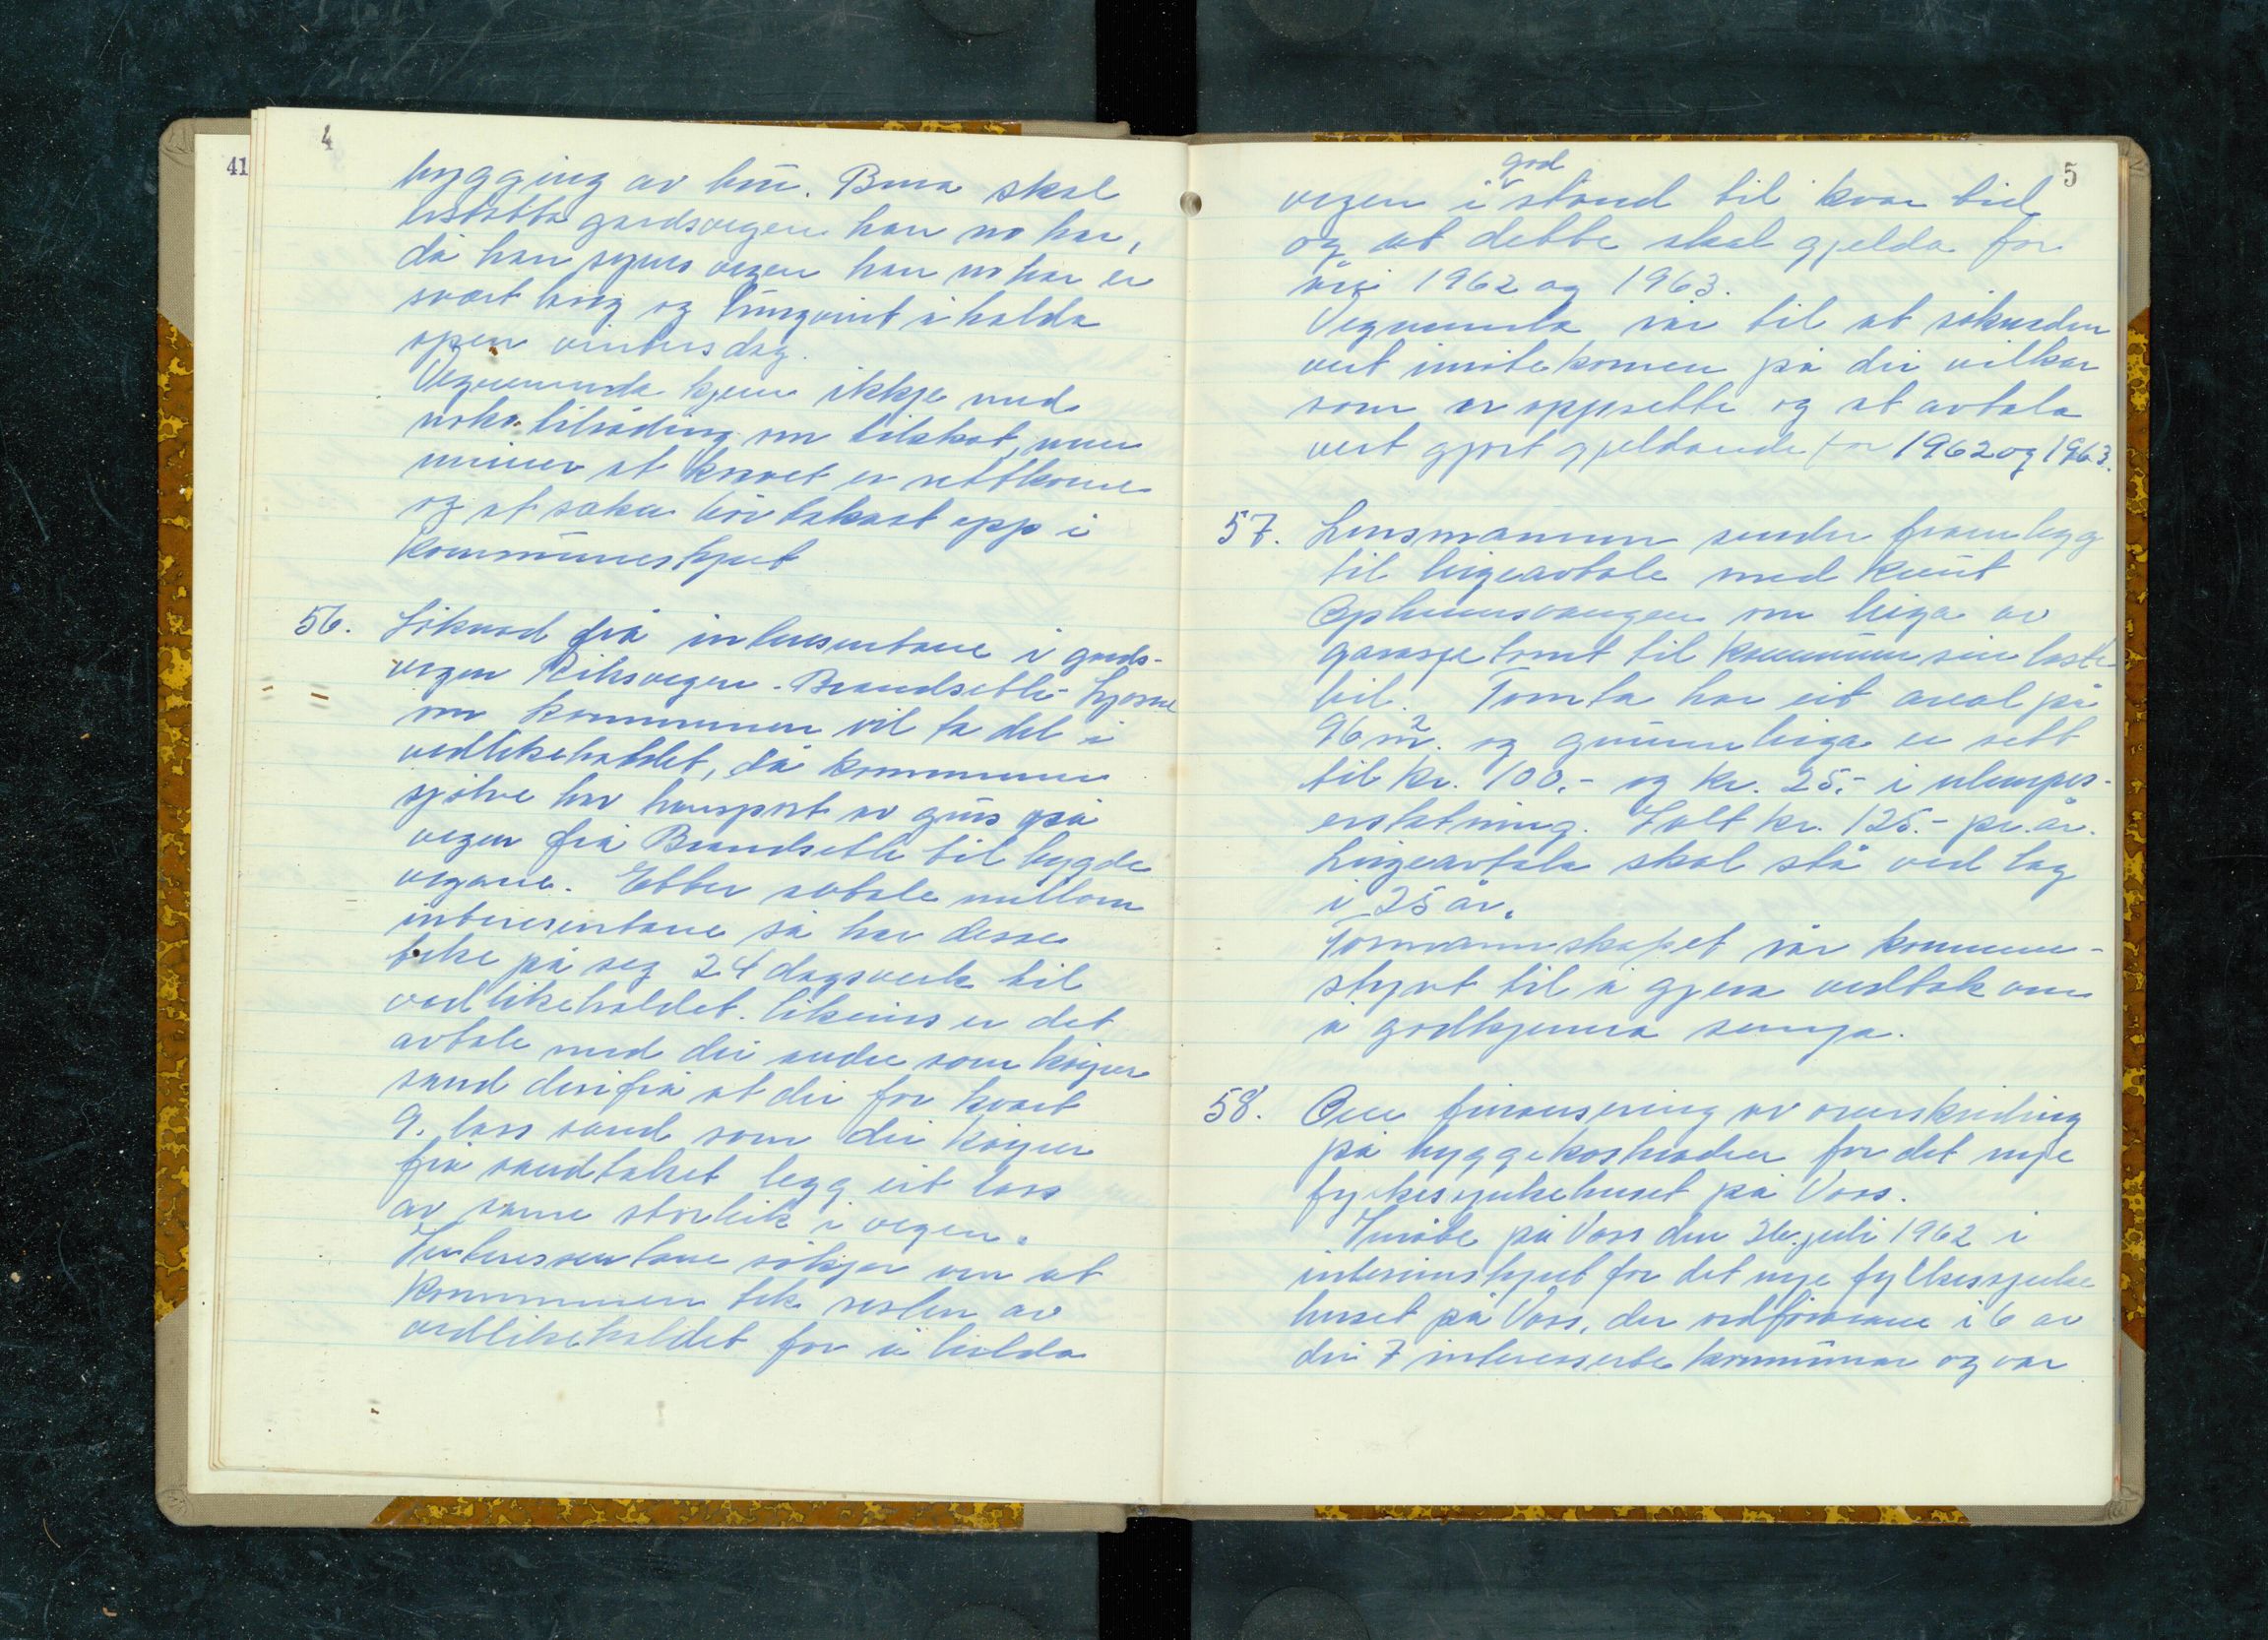 41
4
bygging av bru. Brua skal
erstatta gardsvegen han no har,
då han synes vegen han no har er
svært lang og tungvint å halda
open vintersdag.
Vegnemnda kjem ikkje med
noka tilråding om tilskot, men
meiner at kravet er rettkome
og at saka bör takast opp i
kommunestyret
56. Söknad frå interesentane i gards-
vegen Riksvegen - Brandsette - Hjorne
om kommunen vil ta del i
vedlikehaldet, då kommunen
sjölve har transport av grus på
vegen frå Brandsette til bygde
vegane. Etter avtale millom
interesentane så har desse
teke på seg 24 dagsverk til
vedlikehaldet. Likeins er det
avtale med dei andre som köyrer
sand derifrå at dei for kvart
9. lass sand som dei köyrer
frå sandtaket legg eit lass
av same storleik i vegen.
Interessentane søkjer om at
kommunen tek resten av
vedlikehaldet for å halda
5
god
vegen i stand til kvar tid
og at dette skal gjelda for
åri 1962 og 1963.
Vegnemnda rår til at söknaden
vert imötekomen på dei vilkar
som er oppsette og at avtala
vert gjort gjeldande for 1962 og 1963.
57. Lensmannen sender framlegg
til leigeavtale med Knut
Opheimsvangen om leiga av
garasjetomt til kommunen sin laste-
bil. Tomta har eit areal på
96 m². og grunnleiga er sett
til kr. 100,- og kr. 25,- i ulempes-
erstatning. Ialt kr. 125.- pr. år.
Leigeavtala skal stå ved lag
i 25 år.
Formannskapet rår kommune-
styret til å gjera vedtak om
å godkjenna semja.
58. Om finansering av overskriding
på byggekostnaden for det nye
fylkessjukehuset på Voss.
I möte på Voss den 26. juli 1962 i
interimstyret for det nye fylkessjuke
huset på Voss, der ordförarane i 6 av
dei 7 interesserte kommunar og var